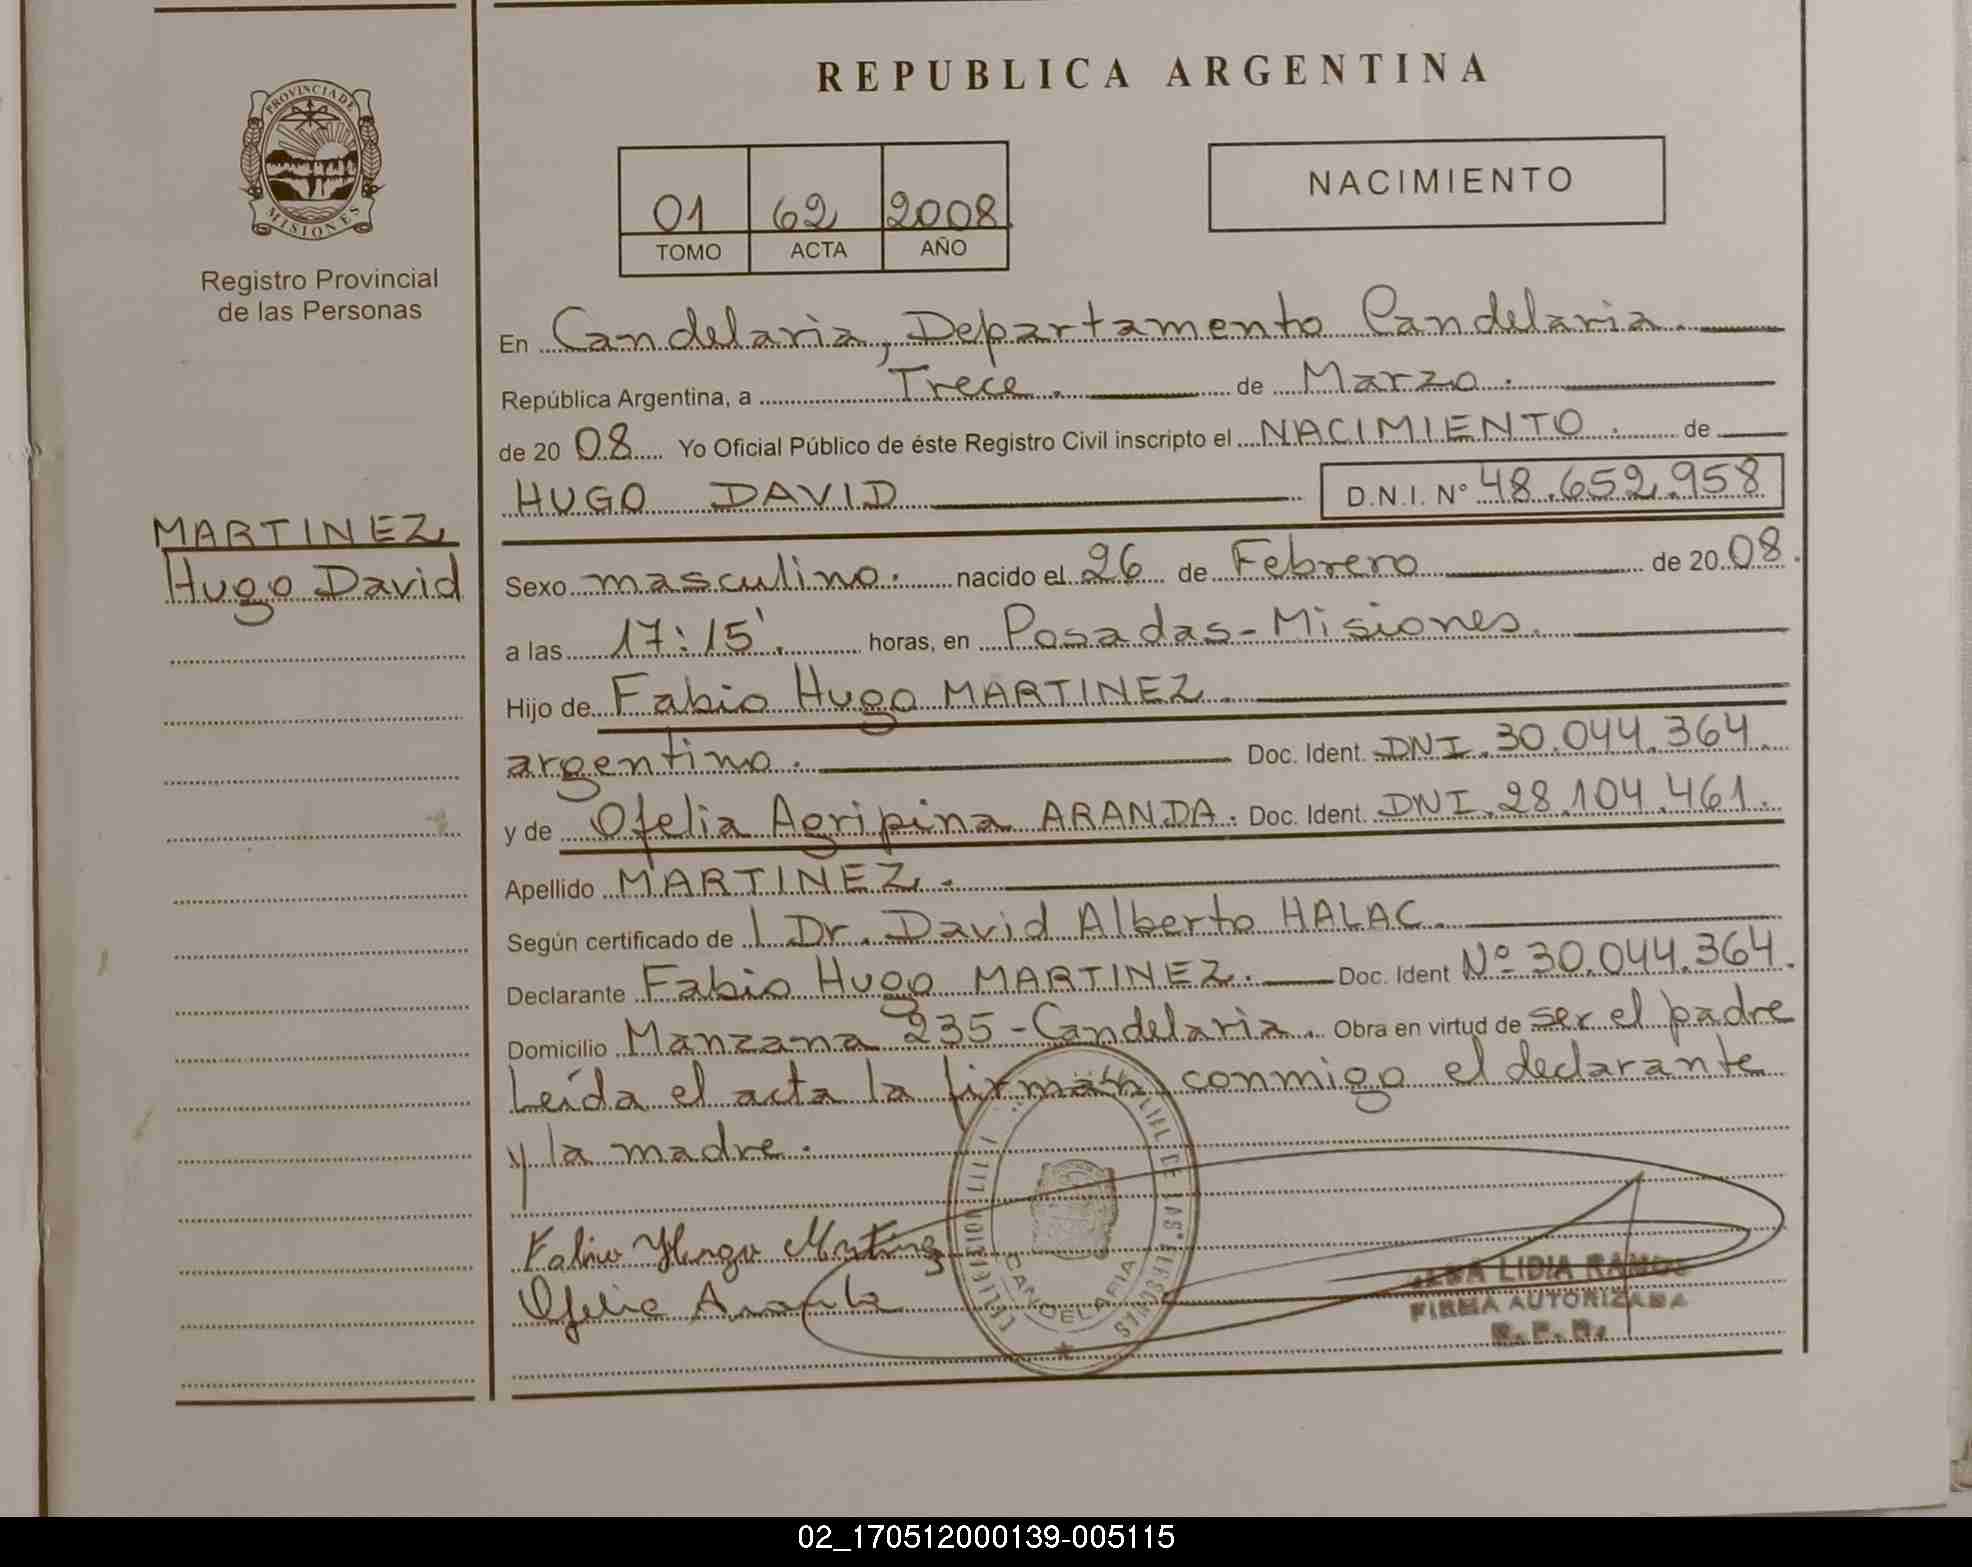 REPUBLICA ARGENTINA
PROVINCIA DE
MISIONES
Registro Provincial
de las Personas
01 62 2008
TOMO ACTA AÑO
NACIMIENTO
En Candelaria, Departamento Candelaria.
República Argentina, a Trece. de Marzo.
de 2008 Yo Oficial Público de éste Registro Civil inscripto el NACIMIENTO. de
HUGO DAVID D.N.I. N° 48.652.958
MARTINEZ
Hugo David
Sexo masculino. nacido el 26 de Febrero de 2008.
a las 17:15'. horas, en Posadas-Misiones.
Hijo de Fabio Hugo MARTINEZ.
argentino. Doc. Ident. DNI.30.044.364.
y de Ofelia Agripina ARANDA. Doc. Ident. DNI.28.104.461.
Apellido MARTINEZ.
Según certificado de l Dr. David Alberto HALAC.
Declarante Fabio Hugo MARTINEZ. Doc. Ident Nº 30.044.364.
Domicilio Manzana 235-Candelaria. Obra en virtud de ser el padre
Leída el acta la firman conmigo el declarante
y la madre.
Fabio Hugo Martinez
Ofelia Aranda
CANDELARIA
LIDIA RAMOS
FIRMA AUTORIZADA
R.P.P.
02_170512000139-005115